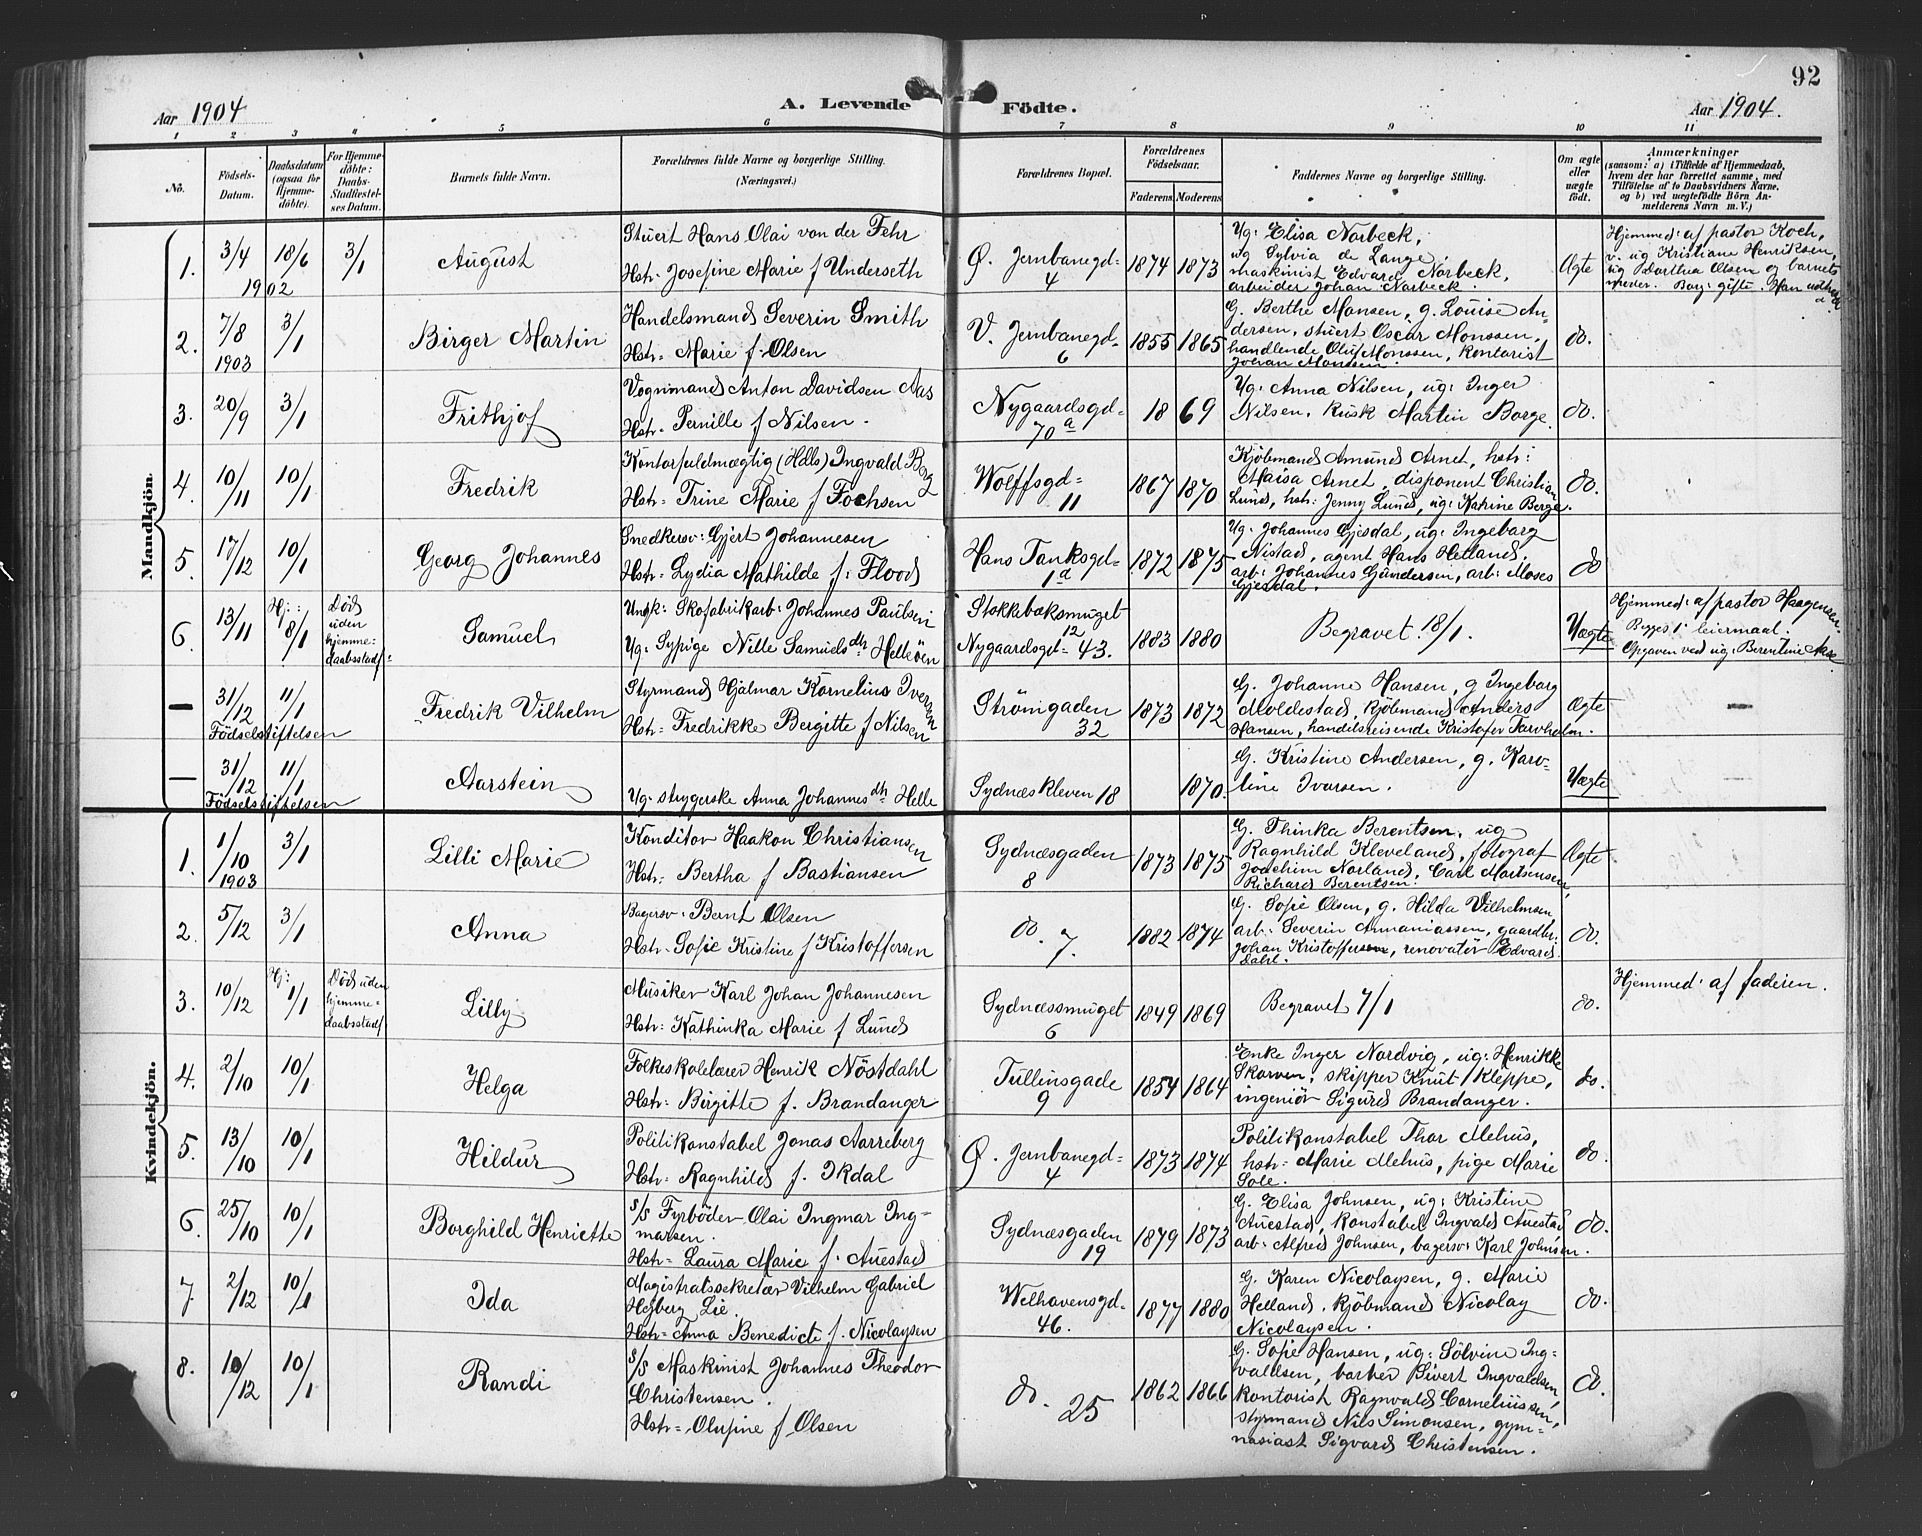 92
Aar 1904
A. Levende Födte.
Aar 1904.
1 2 3 4 5 6 7 8 9 10 11
No.
Födsels-Datum.
Daabsdatum (ogsaa for Hjemme-döbte).
For Hjemme-döbte: Daabs-Stadfæstel-ses Datum.
Barnets fulde Navn.
Forældrenes fulde Navne og borgerlige Stilling.
(Næringsvei.)
Forældrenes Bopæl.
Forældrenes Födselsaar.
Faderens Moderens
Faddernes Navne og borgerlige Stilling.
Om ægte eller uægte födt.
Anmærkninger
(saasom: a) i Tilfælde af Hjemmedaab,
hvem der har forrettet samme, med
Tilföielse af to Daabsvidners Navne,
og b) ved uægtefödte Börn An-
melderens Navn m. V.)
Mandkjön.
1. 3/4 1902 18/6 3/1 August
Stuert Hans Olai von der Fehr
Hstr. Josefine Marie f Underseth
Ø. Jernbanegd. 4
1874 1873
Ug. Elisa Norbeck,
ug Sylvia de Lange,
maskinist Edvard Norbeck,
arbeider Johan Norbeck.
Ægte
Hjemmed: af pastor Koch,
v. ug Kristiane Henriksen,
ug Dorthea Olsen og barnets
moder. Borg: gifte.
2. 7/8 1903 3/1 Birger Martin
Handelsmand Severin Smith
Hstr. Marie f. Olsen
V. Jernbanegd. 6
1855 1865
G. Berthe Monsen, g. Louise An-
dersen, stuert Oscar Monssen,
handlende Oluf Monssen, kontorist
Johan Monssen.
do.
3. 20/9 3/1 Frithjof
Vognmand Anton Davidsen Aas
Hstr. Pernille f Nilsen.
Nygaardsgd. 70 a
1869
Ug. Anna Nilsen, ug: Inger
Nilsen, kusk Martin Borge.
do.
4. 10/11 10/1 Fredrik
Kontorfuldmægtig (Hells) Ingvald Borg
Hstr. Trine Marie f Fochsen
Wolffsgd. 11
1867 1870
Kjöbmand Amund Arnet, hstr:
Maisa Arnet, disponent Christian
Lund, hst: Jenny Lund, ug: Katrine Berge.
do.
5. 17/12 10/1 Georg Johannes
Snedkersv: Gjert Johannesen
Hstr. Lydia Mathilde f. Flood
Hans Tanksgd. 1 d
1872 1875
Ug. Johannes Gjesdal, ug: Ingeborg
Nistad, agent Hans Hetland,
arb: Johannes Gundersen, arb: Moses
Gjesdal.
do
6. 13/11 Hj: 8/1 Död uden hjemme-daabsstadf. Samuel
Ungk: Skofabrikarb: Johannes Paulsen
Ug: Sypige Nille Samuels dtr Helleöen
Stokkebæksmuget 12
Nygaardsgd. 43.
1883 1880
Begravet 18/1.
Uægte
Hjemmed: af pastor Haagensen.
Begges 1' leiermaal.
Opgaven ved ug: Berentine
— 31/12 11/1 Fredrik Vilhelm
Födselstiftelsen
Styrmand Hjalmar Kornelius Iversen
Hstr. Fredrikke Bergitte f Nilsen
Strömgaden 32
1873 1872
G. Johanne Hansen, g Ingeborg
Moldestad, kjöbmand Anders
Hansen, handelsreisende Kristofer
Ægte
—
— 31/12 11/1 Aarstein
Födselstiftelsen
Ug. strygerske Anna Johannes dtr Helle
Sydnæskleven 18
1870.
G. Kristine Andersen, g. Karo-
line Ivarsen.
Uægte
—
Kvindekjön.
1. 1/10 1903 3/1 Lilli Marie
Konditor Haakon Christiansen
Hstr. Bertha f Bastiansen
Sydnæsgaden 8
1873 1875
G. Thinka Berentsen, ug
Ragnhild Kleveland, fotograf
Joachim Norland, Carl Martsensen,
Richard Berentsen.
Ægte
2. 5/12 3/1 Anna
Bagersv: Bernt Olsen
Hstr. Sofie Kristine f Kristoffersen
do. 7.
1882 1874
G. Sofie Olsen, g. Hilda Vilhelmsen,
arb: Severin Ammaniassen, gaardbr:
Johan Kristoffersen, renovatör Edvard
Dahl.
do.
3. 10/12 Hj: 1/1 Död uden hjemme-daabsstadf Lilly
Musiker Karl Johan Johannesen
Hstr. Kathinka Marie f Lund
Sydnæssmuget 6
1849 1869
Begravet 7/1
do.
Hjemmed: af faderen.
4. 2/10 10/1 Helga
Folkeskolelærer Henrik Nöstdahl
Hstr. Birgitte f. Brandanger
Tullinsgade 9
1854 1864
Enke Inger Nordvig, ug: Henrikke
Skorven, skipper Knut Kleppe,
ingeniör Sigurd Brandanger.
do.
5. 13/10 10/1 Hildur
Politikonstabel Jonas Aarreberg
Hstr. Ragnhild f. Ikdal
Ø. Jernbanegd. 4
1873 1874
Politikonstabel Thor Mehus,
hstr. Marie Mehus, pige Marie
Sole.
do.
6. 25/10 10/1 Borghild Henriette
s/s Fyrböder Olai Ingmar Ing-
marsen.
Hstr. Laura Marie f. Auestad
Sydnæsgaden 19
1879 1873
G. Elisa Johnsen, ug: Kristine
Auestad, konstabel Ingvald Auestad
arb: Alfred Johnsen, bagersv: Karl Johnsen.
do.
7 2/12 10/1 Ida
Magistratssekretær Vilhelm Gabriel
Heiberg Lie.
Hstr. Anna Benedicte f. Nicolaysen
Welhavensgd. 46.
1877 1880
G. Karen Nicolaysen, g. Marie
Helland, kjöbmand Nicolay
Nicolaysen.
do.
8. 10/12 10/1 Randi
s/s Maskinist Johannes Theodor
Christensen.
Hstr. Olufine f Olsen
do. 25
1862 1866
G. Sofie Hansen, ug: Sölvine Ing-
valdsen, barber Sivert Ingvaldsen,
kontorist Ragnvald Corneliussen,
styrmand Nils Simonsen, gym-
nasiast Sigvard Christensen.
do.